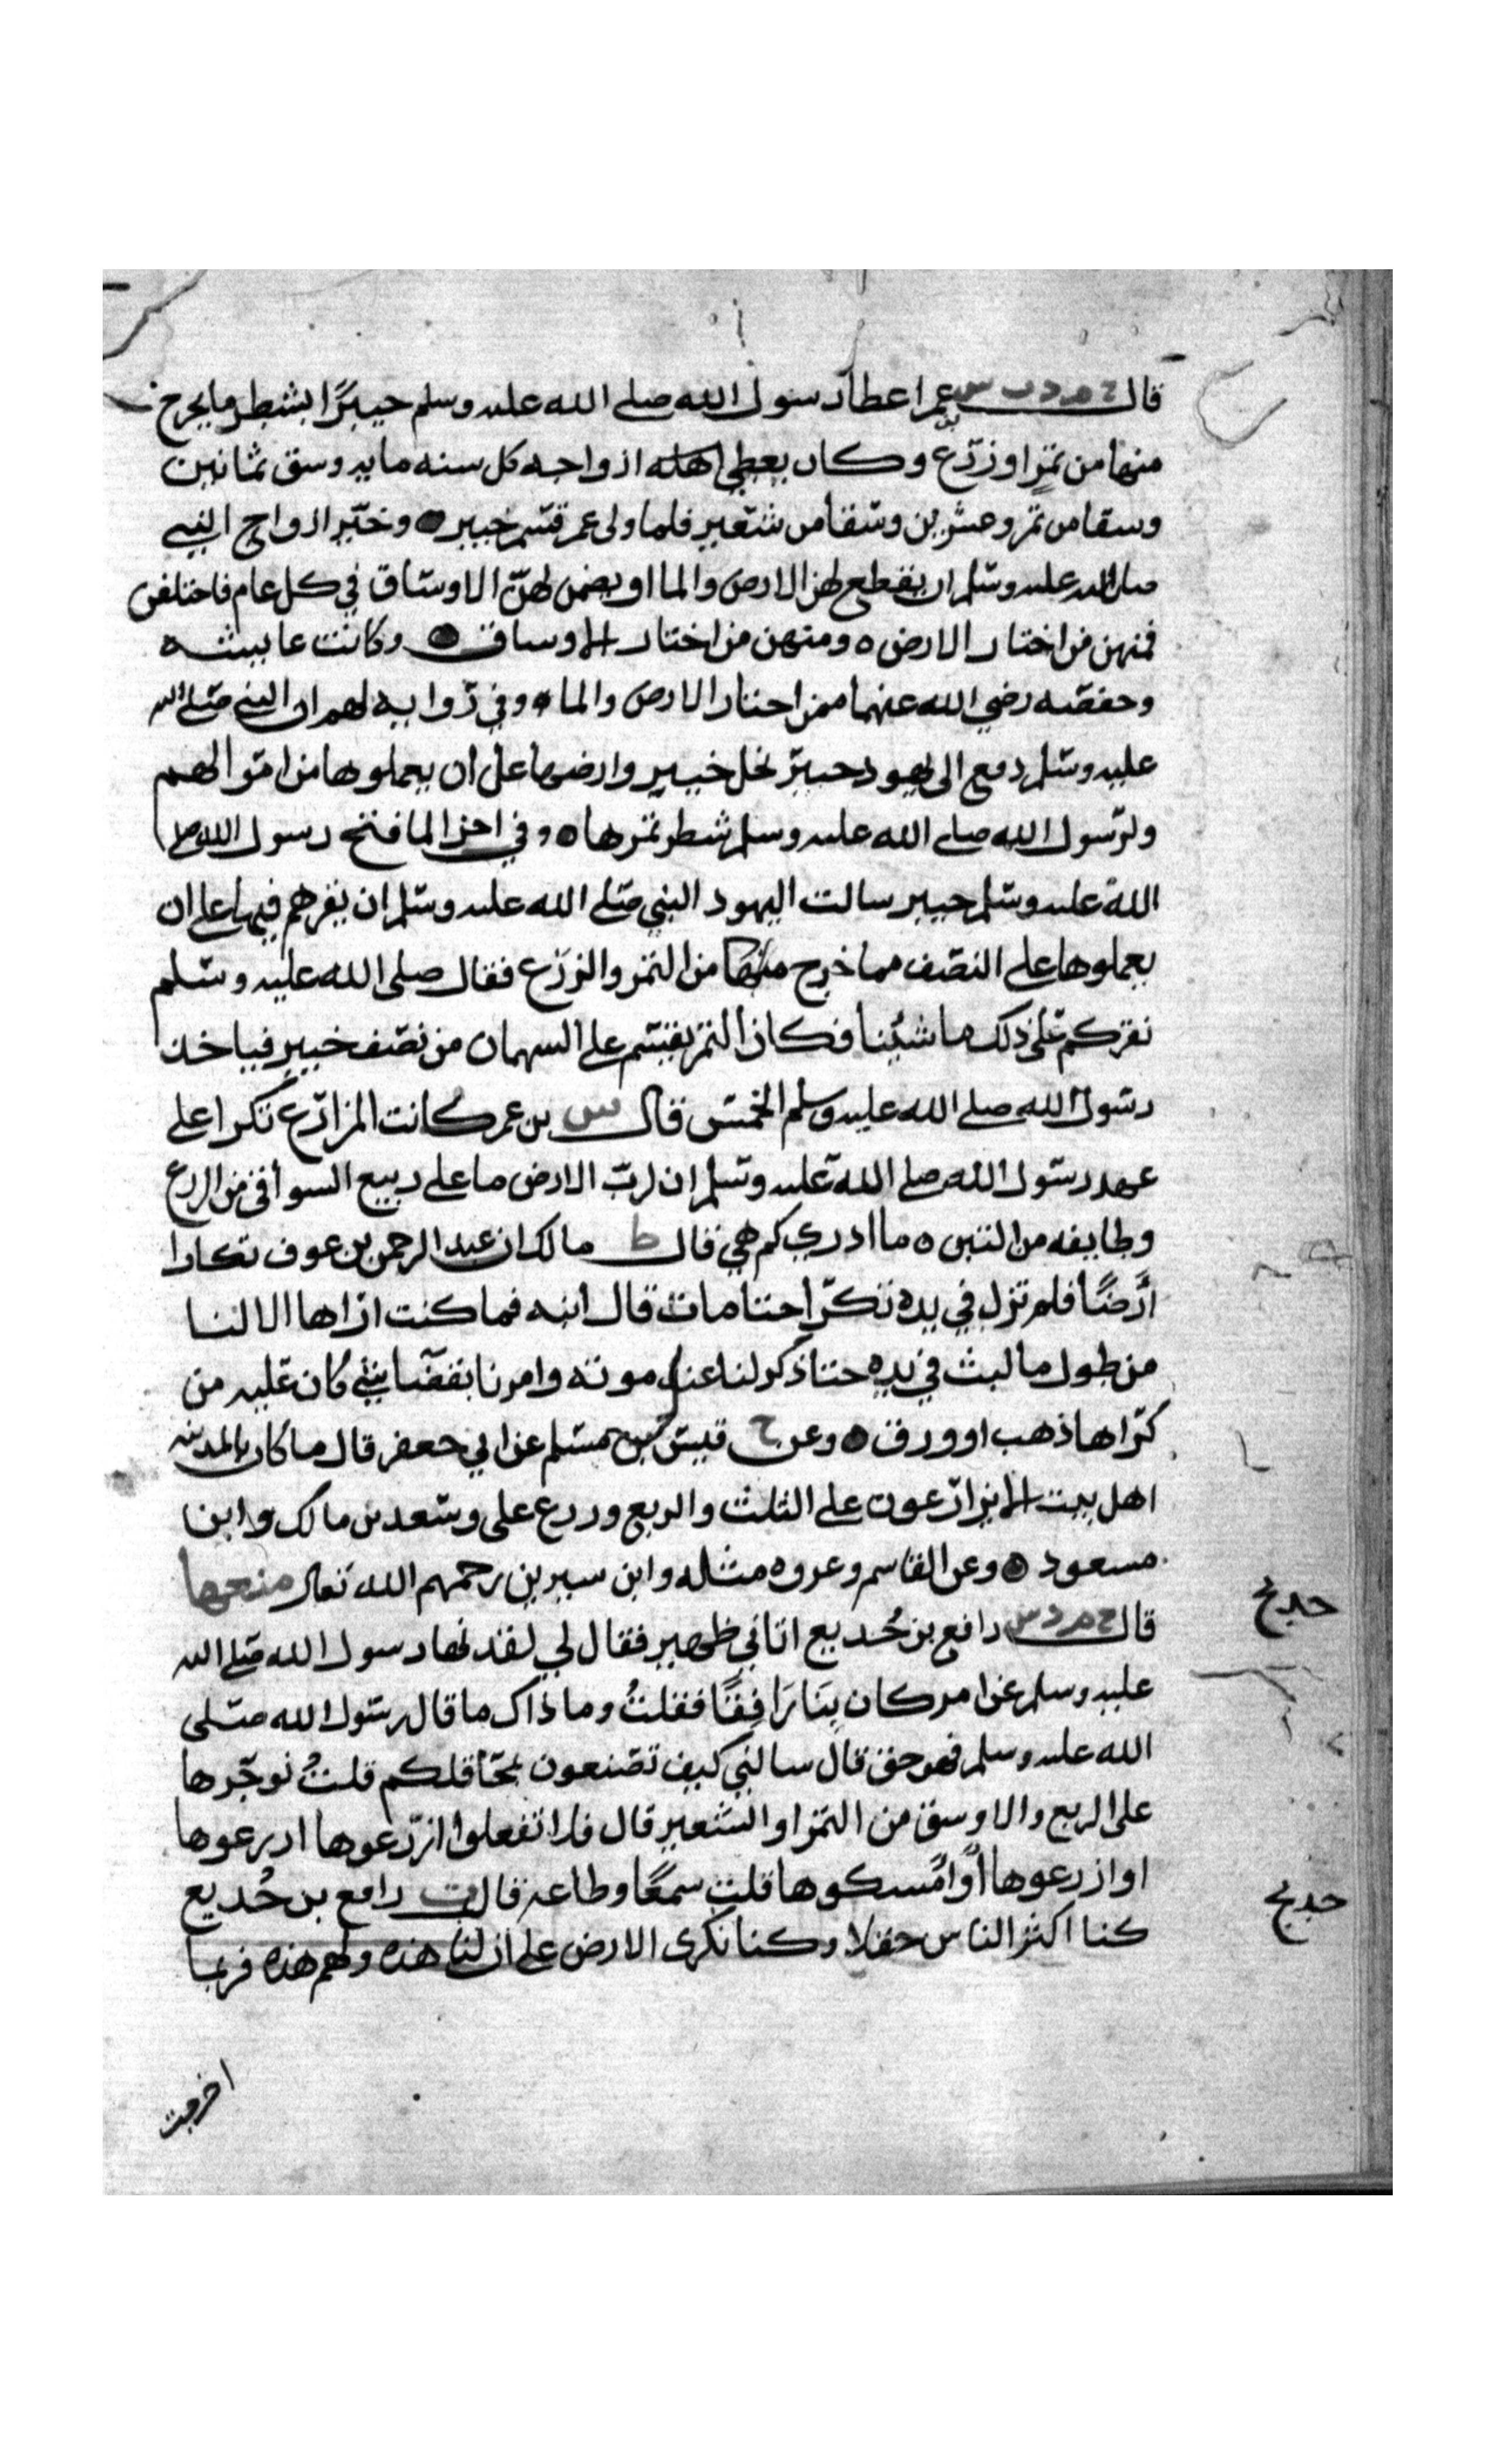 قال خ م د ت س عمر اعطا رسول الله صلى الله عليه وسلم خيبرا بشطر ما يخرج
منها من ثمر او زرع وكان يعطي ازواجه كل سنه مايه وسق ثمانين
وسقا من تمر وعشرين وسقا من شعير فلما ولى عمر قسم خيبر وخير ازواج النبي
صلى الله عليه وسلم ان يقطع لهن الارض والما او يضمن لهن الاوساق في كل عام فاختلفن
فمنهن من اختار الارض ه ومنهن من اختار الاوساق وكانت عايشه
وحفصه رضي الله عنهما ممن اختار الارض والما ه وفي روايه لهم ان النبي صلى الله
عليه وسلم دفع الى يهود خيبر نخل خيبر وارضها على ان يعملوها من اموالهم
ولرسول الله صلى الله عليه وسلم شطر ثمرها ه وفي اخرا لما فتح رسول الله صلى
الله عليه وسلم خيبر سالت اليهود النبي صلى الله عليه وسلم ان يقرهم فيها على ان
يعملوها على النصف مما خرج منها من الثمر والزرع فقال صلى الله عليه وسلم
نقركم على ذلك ما شئنا فكان الثمر يقسم على السهمان من نصف خيبر فياخذ
رسول الله صلى الله عليه وسلم الخمس قال س بن عمر كانت المزارع تكرا على
عهد رسول الله صلى الله عليه وسلم ان لرب الارض ما على ربيع السواقي من الزرع
وطايفه من التبن ه ما ادري كم هي قال ط مالك ان عبد الرحمن بن عوف تكارا
أرضًا فلم تزل في يده تكرا حتا مات قال ابنه فما كنت اراها الا لنا
من طول ما لبث في يده حتا ذكر لنا عند موته وامرنا بقضا شي كان عليه من
كراها ذهب او ورق وعن خ قيس بن مسلم عن ابي جعفر قال ما كان بالمدينه
اهل بيت الا يزارعون على الثلث والربع وزرع على وسعد بن مالك وابن
مسعود وعن القاسم وعروه مثله وابن سيرين رحمهم الله تعالى منعها
قال خ م د س رافع بن خُديع اتاني ظهير فقال لي لقد نها رسول الله صلى الله
عليه وسلم عن امر كان بنَا رَافِقًا فقلتُ وما ذاك ما قال رسول الله صلى
الله عليه وسلم فهو حق قال سالني كيف تصنعون بمحاقلكم قلتُ نوجرها
على الربع والاوسق من التمر او الشعير قال فلا تفعلوا ازرعوها ازرعوها
او ازرعوها أو امسكوها قلت سمعًا وطاعه قال ق رافع بن خُديع
كنا اكثر الناس حقلا وكنا نكرى الارض على ان لنا هذه ولهم هذه فربما
اخرجت
خديج
خديج